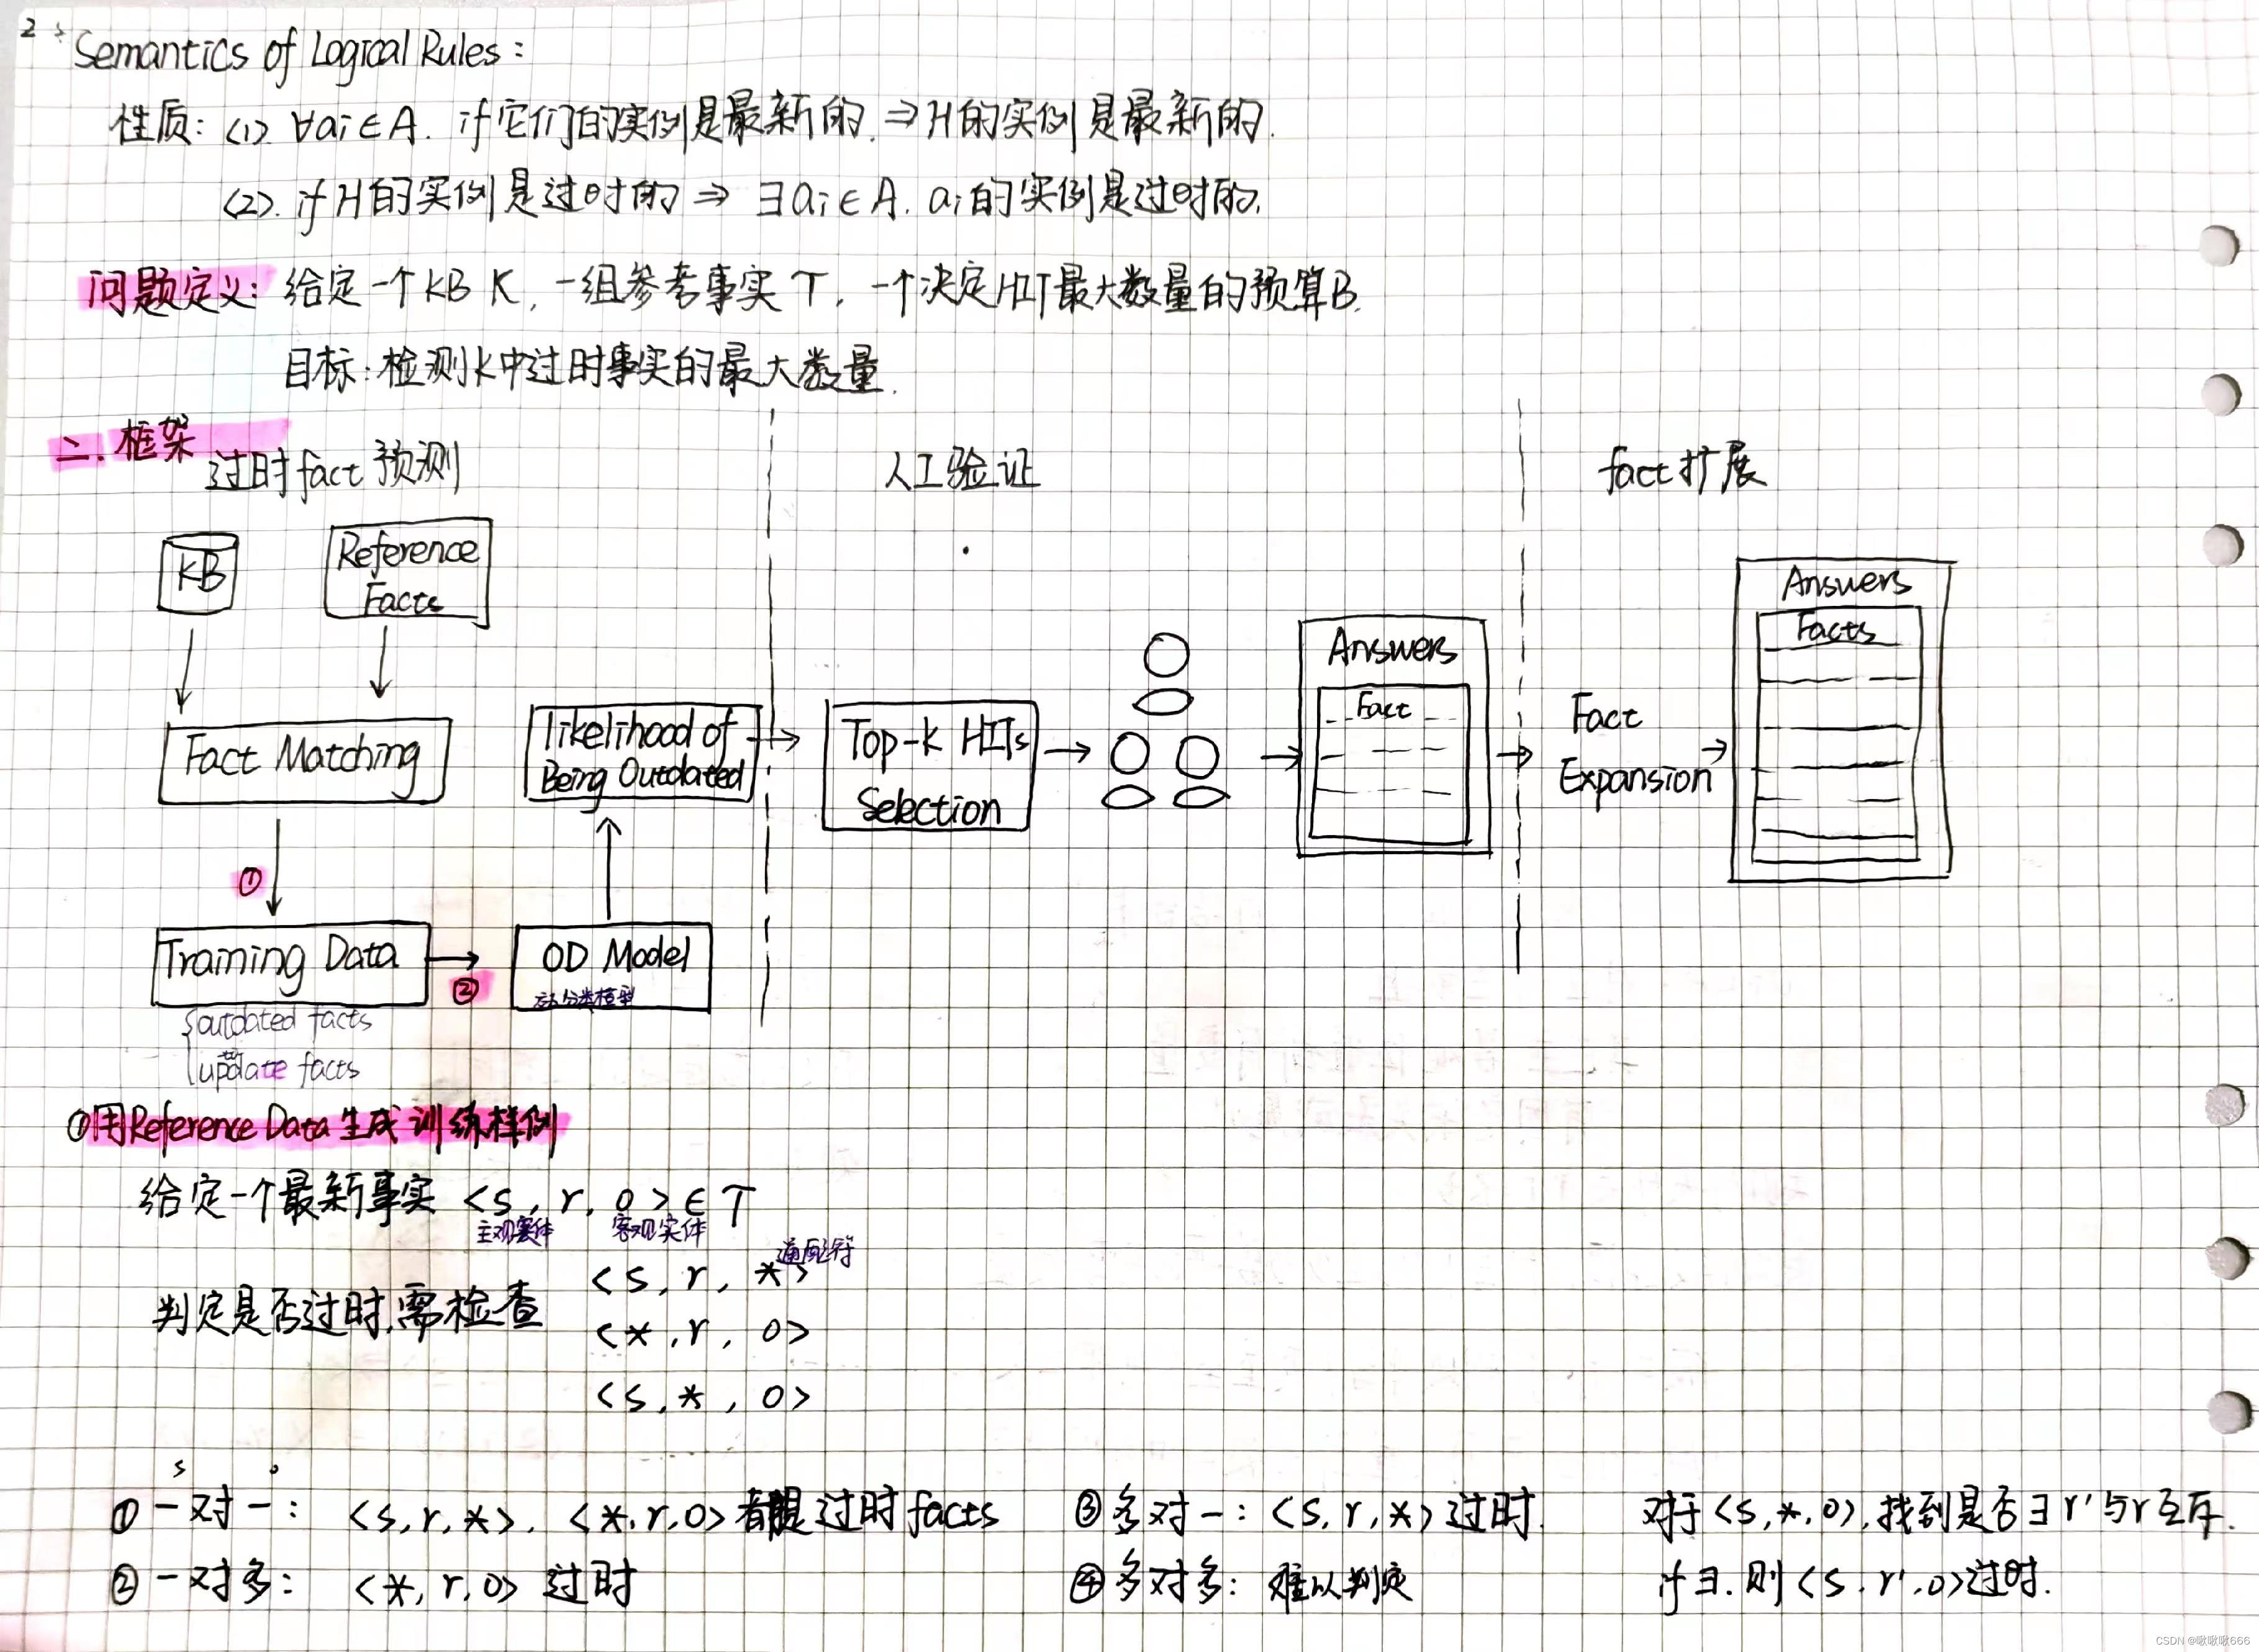 2
Semantics of Logical Rules:
性质: (1). ∀ai∈A. if它们的实例是最新的. ⇒ H的实例是最新的.
(2). if H的实例是过时的 ⇒ ∃ai∈A. ai的实例是过时的.
问题定义: 给定一个KB K, 一组参考事实 T, 一个决定HIT最大数量的预算B.
目标: 检测K中过时事实的最大数量.
二. 框架
过时fact预测
人工验证
fact扩展
KB
Reference
Facts
Answers
Facts
Answers
Fact
Fact Matching
likelihood of
Being Outdated
Top-k HITs
Selection
Fact
Expansion
①
Training Data
②
OD Model
分类模型
{outdated facts
update facts
①用Reference Data生成训练样例
给定一个最新事实 <s, r, o>∈T
主观实体 客观实体
通配符
<s, r, *>
判定是否过时,需检查
<*, r, o>
<s, *, o>
s o
①一对一: <s,r,*>, <*,r,o>都是过时facts
③多对一: <s, r, *>过时.
对于<s,*,o>,找到是否∃r'与r互斥.
②一对多: <*, r, o> 过时
④多对多: 难以判定
if ∃. 则<s, r', o>过时.
CSDN @啾啾啾666